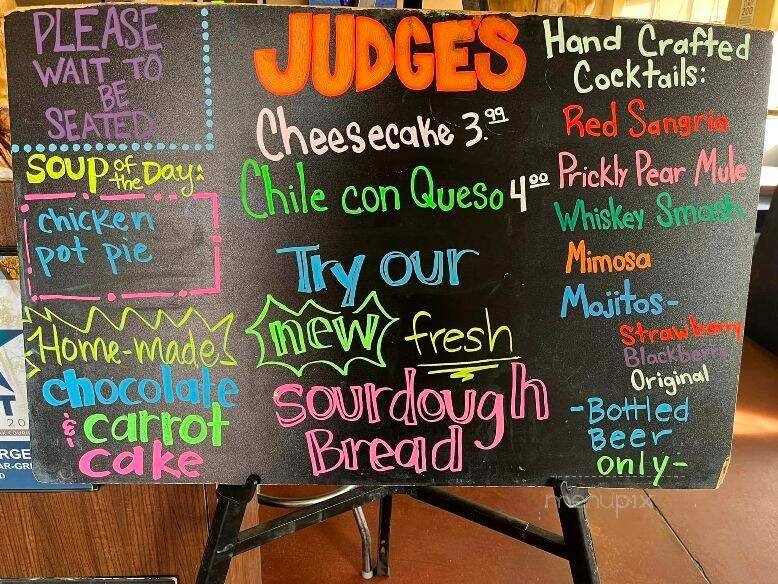 PLEASE
WAIT TO
BE
SEATED
SOUP of the Day:
chicken
pot pie
Home-made
chocolate
& carrot
cake
JUDGE'S
Cheesecake 3.99
Chile con Queso 4.00
Try our
new fresh
sourdough
Bread
Hand Crafted
Cocktails:
Red Sangria
Prickly Pear Mule
Whiskey Smash
Mimosa
Mojitos-
Strawberry
Blackberry
Original
-Bottled
Beer
only-
menupix
T
20
RGE
AR-GRI
D